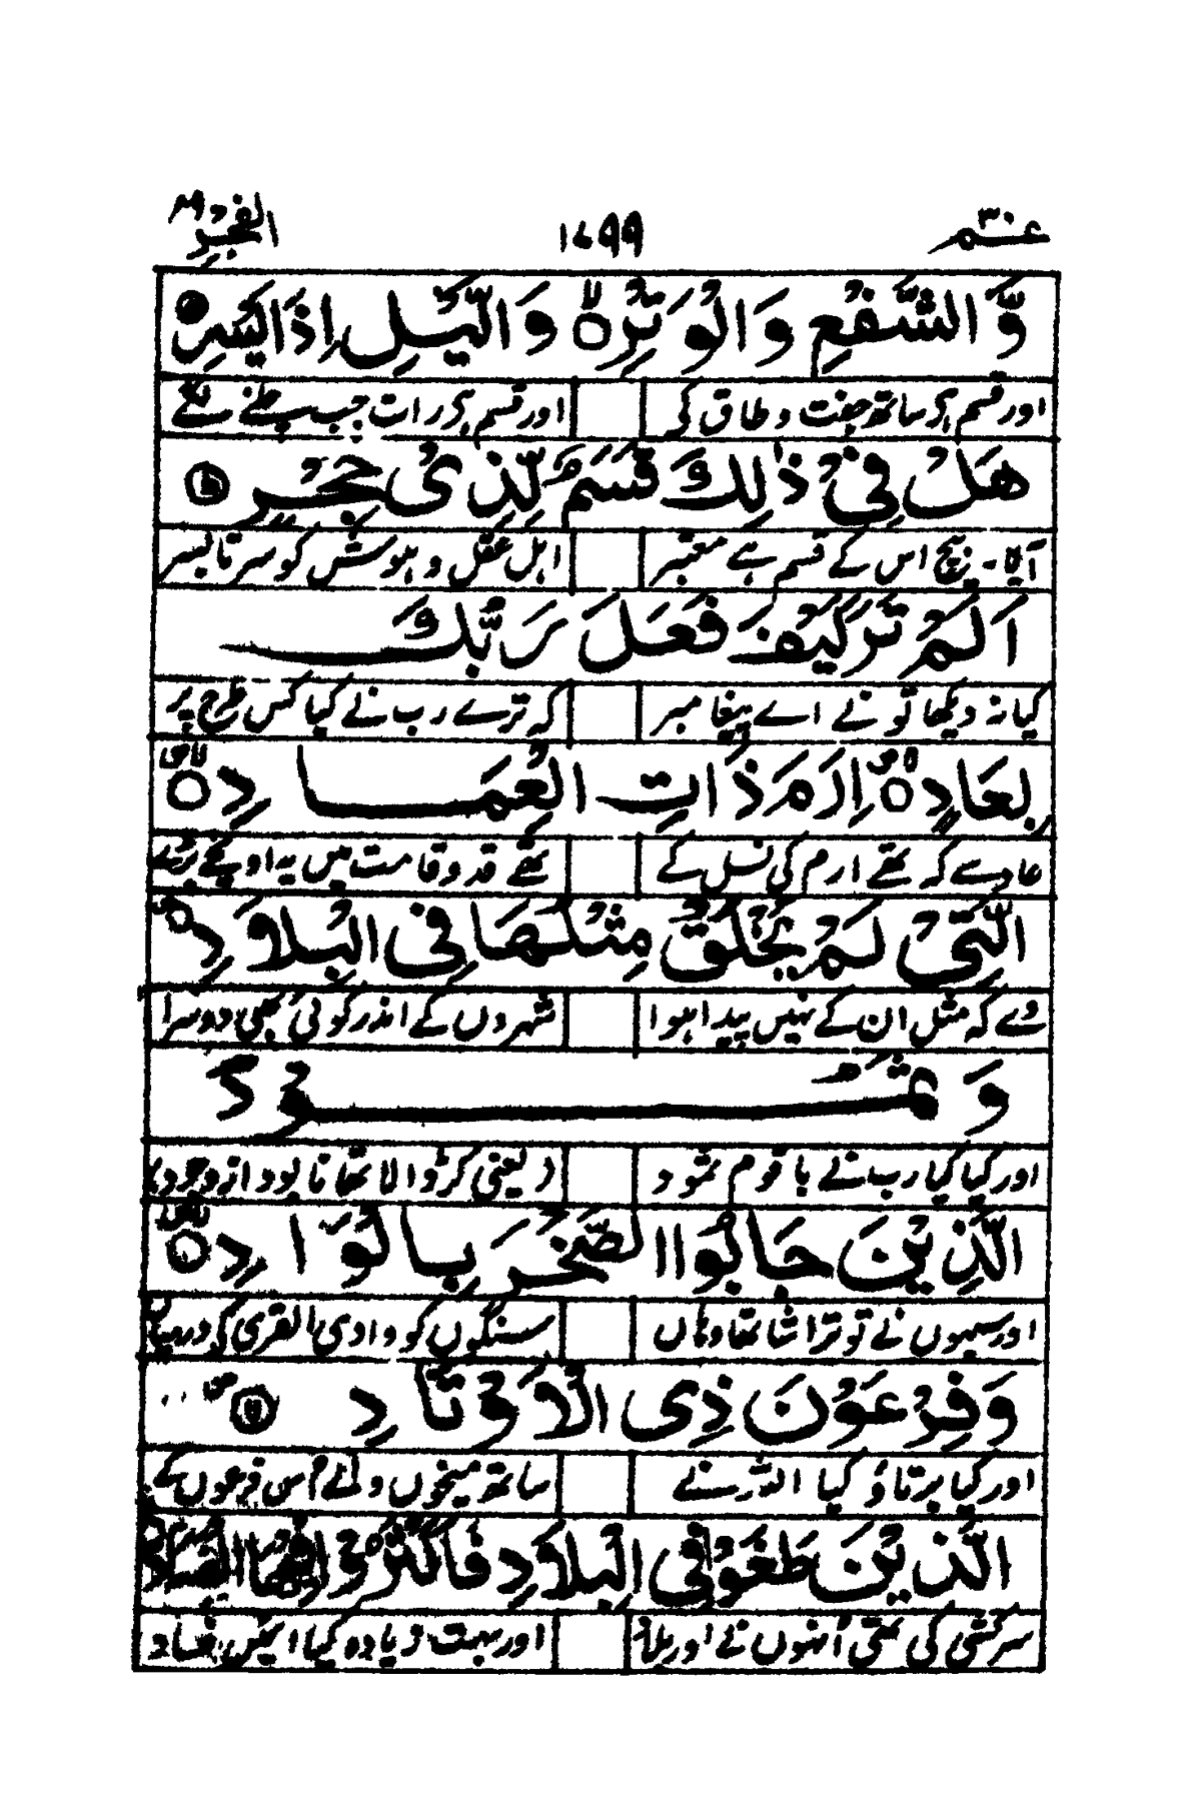 عـم ۳۰ ۱۶۹۹ الفجر ۸۹
وَّالشَّفْعِ وَالْوَتْرِ ۙ وَالَّيْلِ اِذَا يَسْرِ
اور قسم ہے ساتھ جفت و طاق کی اور قسم ہے رات جب چلنے لگے
هَلْ فِيْ ذٰلِكَ قَسَمٌ لِّذِيْ حِجْرٍ ط
آیا۔ بیچ اس کے قسم ہے معتبر اہل عقل و ہوش کو سر تا بسر
اَلَمْ تَرَ كَيْفَ فَعَلَ رَبُّكَ
کیا نہ دیکھا تو نے اے پیغامبر کہ ترے رب نے کیا کس طرح پر
بِعَادٍ ۙ اِرَمَ ذَاتِ الْعِمَادِ
عاد سے کہ تھے ارم کی نسل کے تھے قد و قامت میں یہ اونچے بڑے
الَّتِيْ لَمْ يُخْلَقْ مِثْلُهَا فِي الْبِلَادِ
وے کہ مثل ان کے نہیں پیدا ہوا شہروں کے اندر کوئی بھی دوسرا
وَ ثَمُوْدَ
اور کیا کیا رب نے با قوم ثمود (یعنی کر ڈالا تھا نابود از وجود)
الَّذِيْنَ جَابُوا الصَّخْرَ بِالْوَادِ
اور جنہوں نے تو تراشا تھا وہاں سنگوں کو وادی القریٰ کی درمیاں
وَفِرْعَوْنَ ذِي الْاَوْتَادِ
اور کیا برتاؤ کیا اللہ نے ساتھ میخوں والے اس فرعوں کے
الَّذِيْنَ طَغَوْا فِي الْبِلَادِ فَاَكْثَرُوْا فِيْهَا الْفَسَادَ
سرکشی کی تھی انہوں نے اور بلاد اور بہت زیادہ کیا انمیں فساد